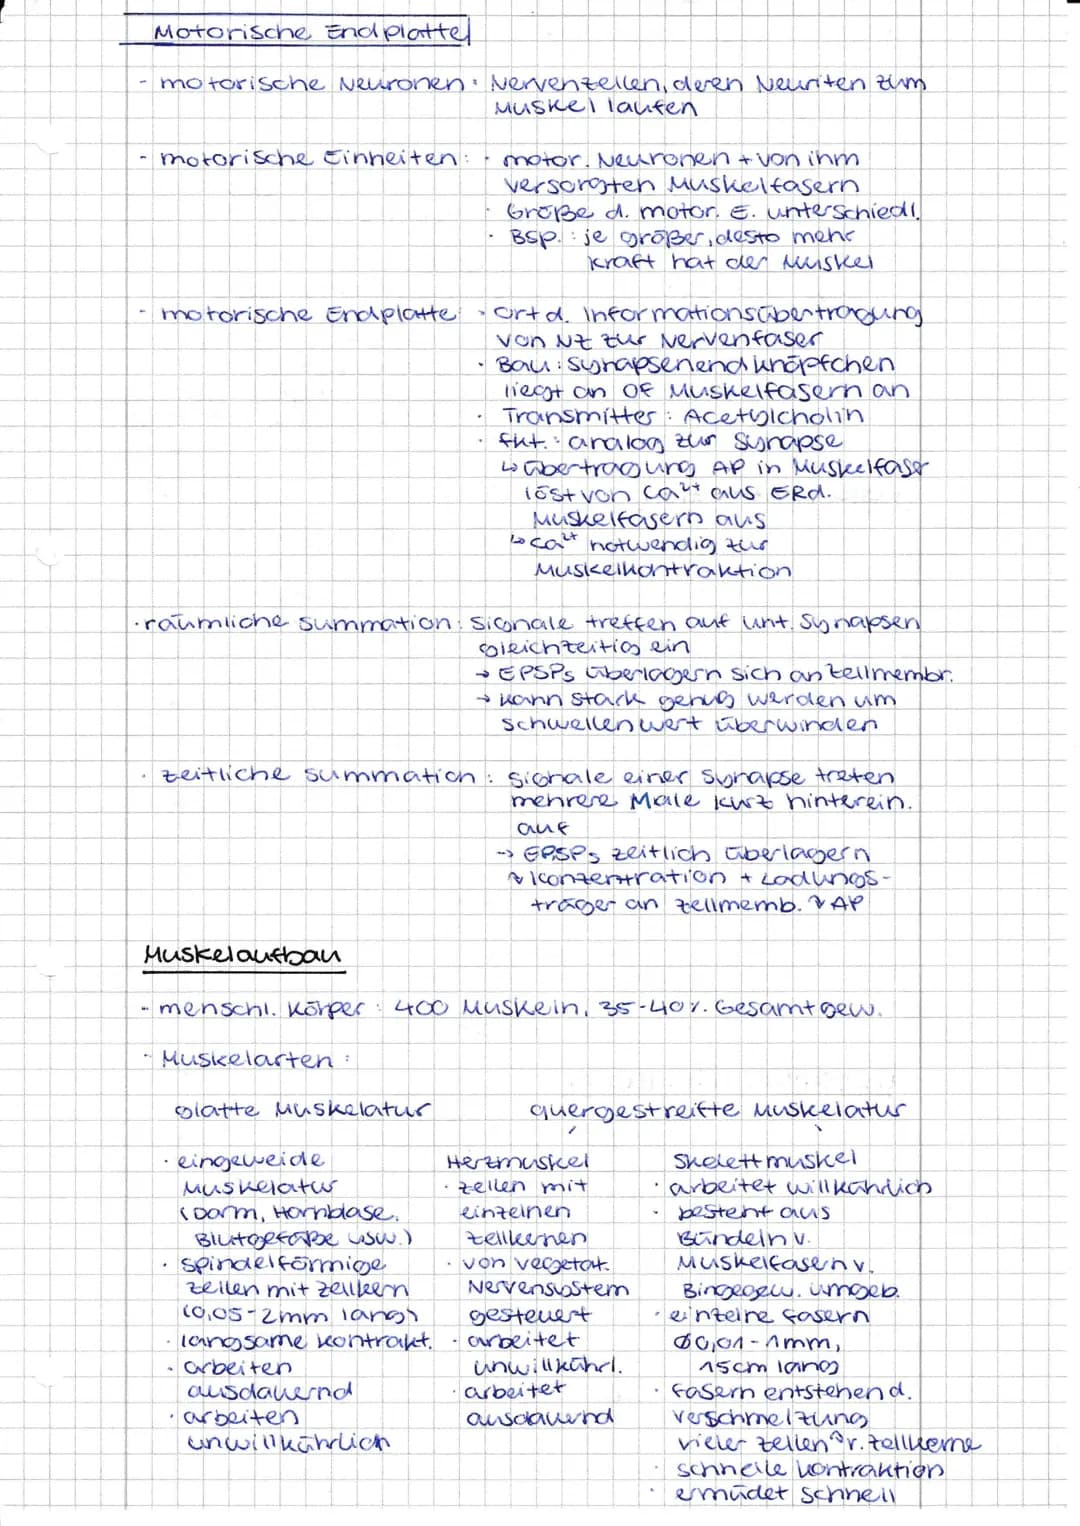 Motorische Endplatte
- motorische Neuronen: Nervenzellen, deren Neuriten zum
Muskel laufen
- motorische Einheiten: · motor. Neuronen + von ihm
versorgten Muskelfasern
· Größe d. motor. E. unterschiedl.
· Bsp.: je größer, desto mehr
Kraft hat der Muskel
- motorische Endplatte: · Ort d. Informationsübertragung
von NZ zur Nervenfaser
· Bau: Synapsenendknöpfchen
liegt an OF Muskelfasern an
· Transmitter: Acetylcholin
· Fkt.: analog zur Synapse
↳ Übertragung AP in Muskelfaser
löst von Ca²⁺ aus ER d.
Muskelfasern aus
↳ Ca²⁺ notwendig zur
Muskelkontraktion
· räumliche Summation: Signale treffen auf unt. Synapsen
gleichzeitig ein
→ EPSPs überlagern sich an Zellmembr.
→ kann stark genug werden um
Schwellenwert überwinden
· zeitliche Summation: Signale einer Synapse treten
mehrere Male kurz hinterein.
auf
→ EPSPs zeitlich überlagern
Konzentration + Ladungs-
träger an Zellmemb. AP
Muskelaufbau
- menschl. Körper: 400 Muskeln, 35-40% Gesamtgew.
- Muskelarten:
glatte Muskelatur quergestreifte Muskelatur
· eingeweide
Muskelatur
(Darm, Harnblase,
Blutgefäße usw.)
· spindelförmige
Zellen mit Zellkern
(0,05-2mm lang)
· langsame Kontrakt.
· arbeiten
ausdauernd
· arbeiten
unwillkührlich
Herzmuskel
· Zellen mit
einzelnen
Zellkernen
· von vegetat.
Nervensystem
gesteuert
· arbeitet
unwillkührl.
· arbeitet
ausdauernd
Skelettmuskel
· arbeitet willkührlich
· besteht aus
Bündeln v.
Muskelfasern v.
Bingegew. umgeb.
· einzelne Fasern
Ø0,01-1mm,
15cm lang
· Fasern entstehen d.
Verschmelzung
vieler Zellen r. Zellkerne
· schnelle Kontraktion
· ermüdet schnell